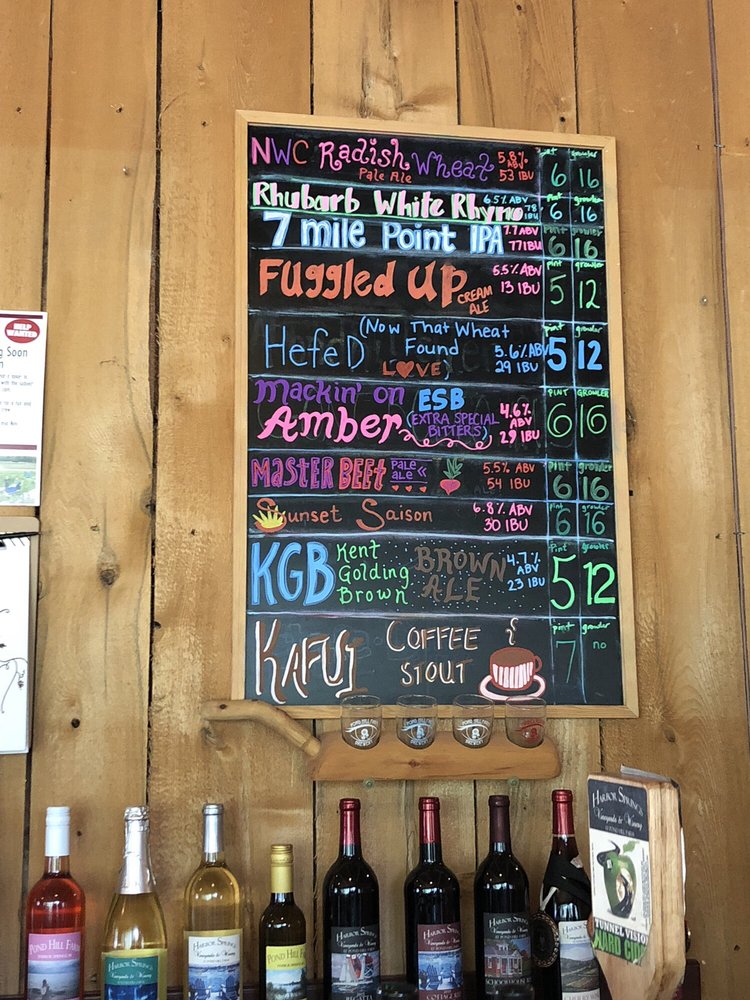 NWC Radish Wheat 5.8% ABV pint growler
Pale Ale 53 IBU 6 16
Rhubarb White Rhyno 6.5% ABV 78 IBU pint growler
6 16
7 mile Point IPA 7.7 ABV 77 IBU pint growler
6 16
Fuggled Up CREAM ALE 5.5% ABV 13 IBU pint growler
5 12
HefeD (Now That Wheat Found LOVE) 5.6% ABV 29 IBU pint growler
5 12
Mackin' on Amber ESB (EXTRA SPECIAL BITTERS) 4.6% ABV 29 IBU PINT GROWLER
6 16
MASTER BEET PALE ALE 5.5% ABV 54 IBU pint growler
6 16
Sunset Saison 6.8% ABV 30 IBU pint growler
6 16
KGB Kent Golding Brown BROWN ALE 4.7% ABV 23 IBU Pint Growler
5 12
KAFUI COFFEE STOUT pint growler
7 no
POND HILL FARM
BREWERY
HELP WANTED
g Soon
POND HILL FARM
HARBOR SPRINGS
HARBOR SPRINGS
Vineyards & Winery
POND HILL FARM
HARBOR SPRINGS
Vineyards & Winery
REGATTA
HARBOR SPRINGS
Vineyards & Winery
COTTAGE
HARBOR SPRINGS
Vineyards & Winery
SCHOOLHOUSE
HARBOR SPRINGS
Vineyards & Winery
@ POND HILL FARM
TUNNEL VISION
HARD CIDER